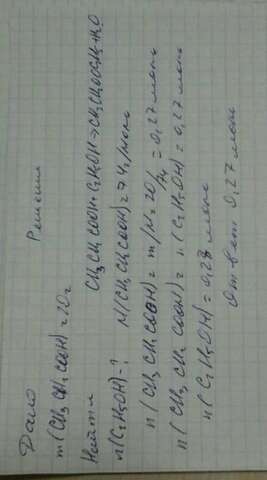 Дано
Решение
m(CH3CH2COOH)=20г
Найти
CH3CH2COOH+C2H5OH→CH3CH2COOC2H5+H2O
n(C2H5OH)-?
M(CH3CH2COOH)=74г/моль
n(CH3CH2COOH)=m/M=20/74=0,27моль
n(CH3CH2COOH)=n(C2H5OH)=0,27моль
n(C2H5OH)=0,27 моль
Ответ 0,27 моль